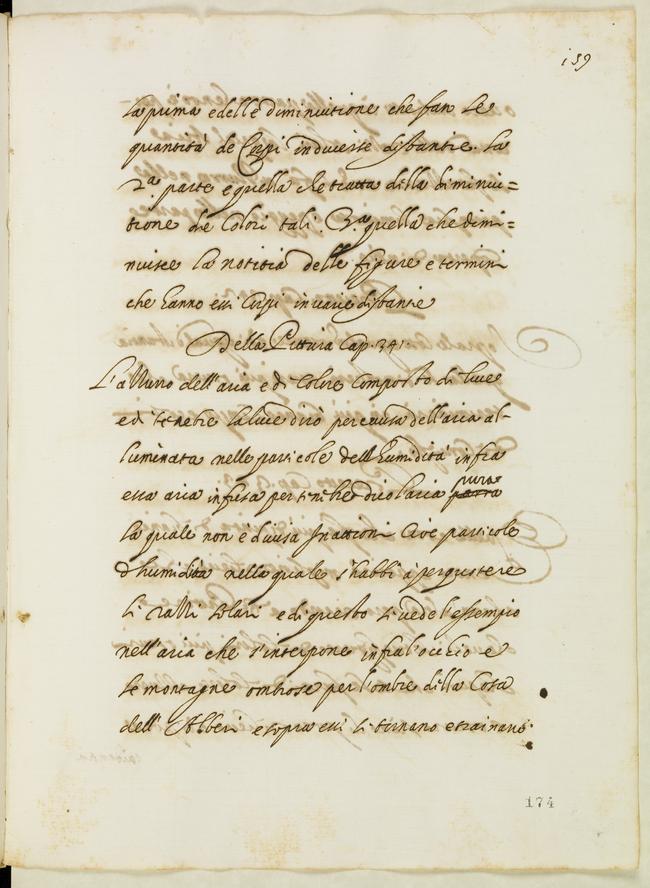 159
La prima e delle Diminuitione che fan le
quantità de Corpi in diverse distantie. La
2.ª parte e quella che tratta della diminui=
tione de Colori tali. 3.ª quella che dimi=
nuisce la notitia delle figure e termini
che hanno essi Corpi in varie distantie
Della Pittura Cap. 341
L'azzurro dell'aria e di Colore Composto di luce
ed tenebre la luce dirò per causa dell'aria al=
luminata nelle particole dell'humidità infra
essa aria infusa per tenebre dico l'aria pura
la quale non è divisa in attioni Cioè particole
d'humidità nella quale s'habbi à percustere
li razzi solari e di questo si vede l'essempio
nell'aria che s'interpone infra l'occhio e
le montagne ombrose per l'ombre della Cosa
dell' Alberi e sopra essi
174